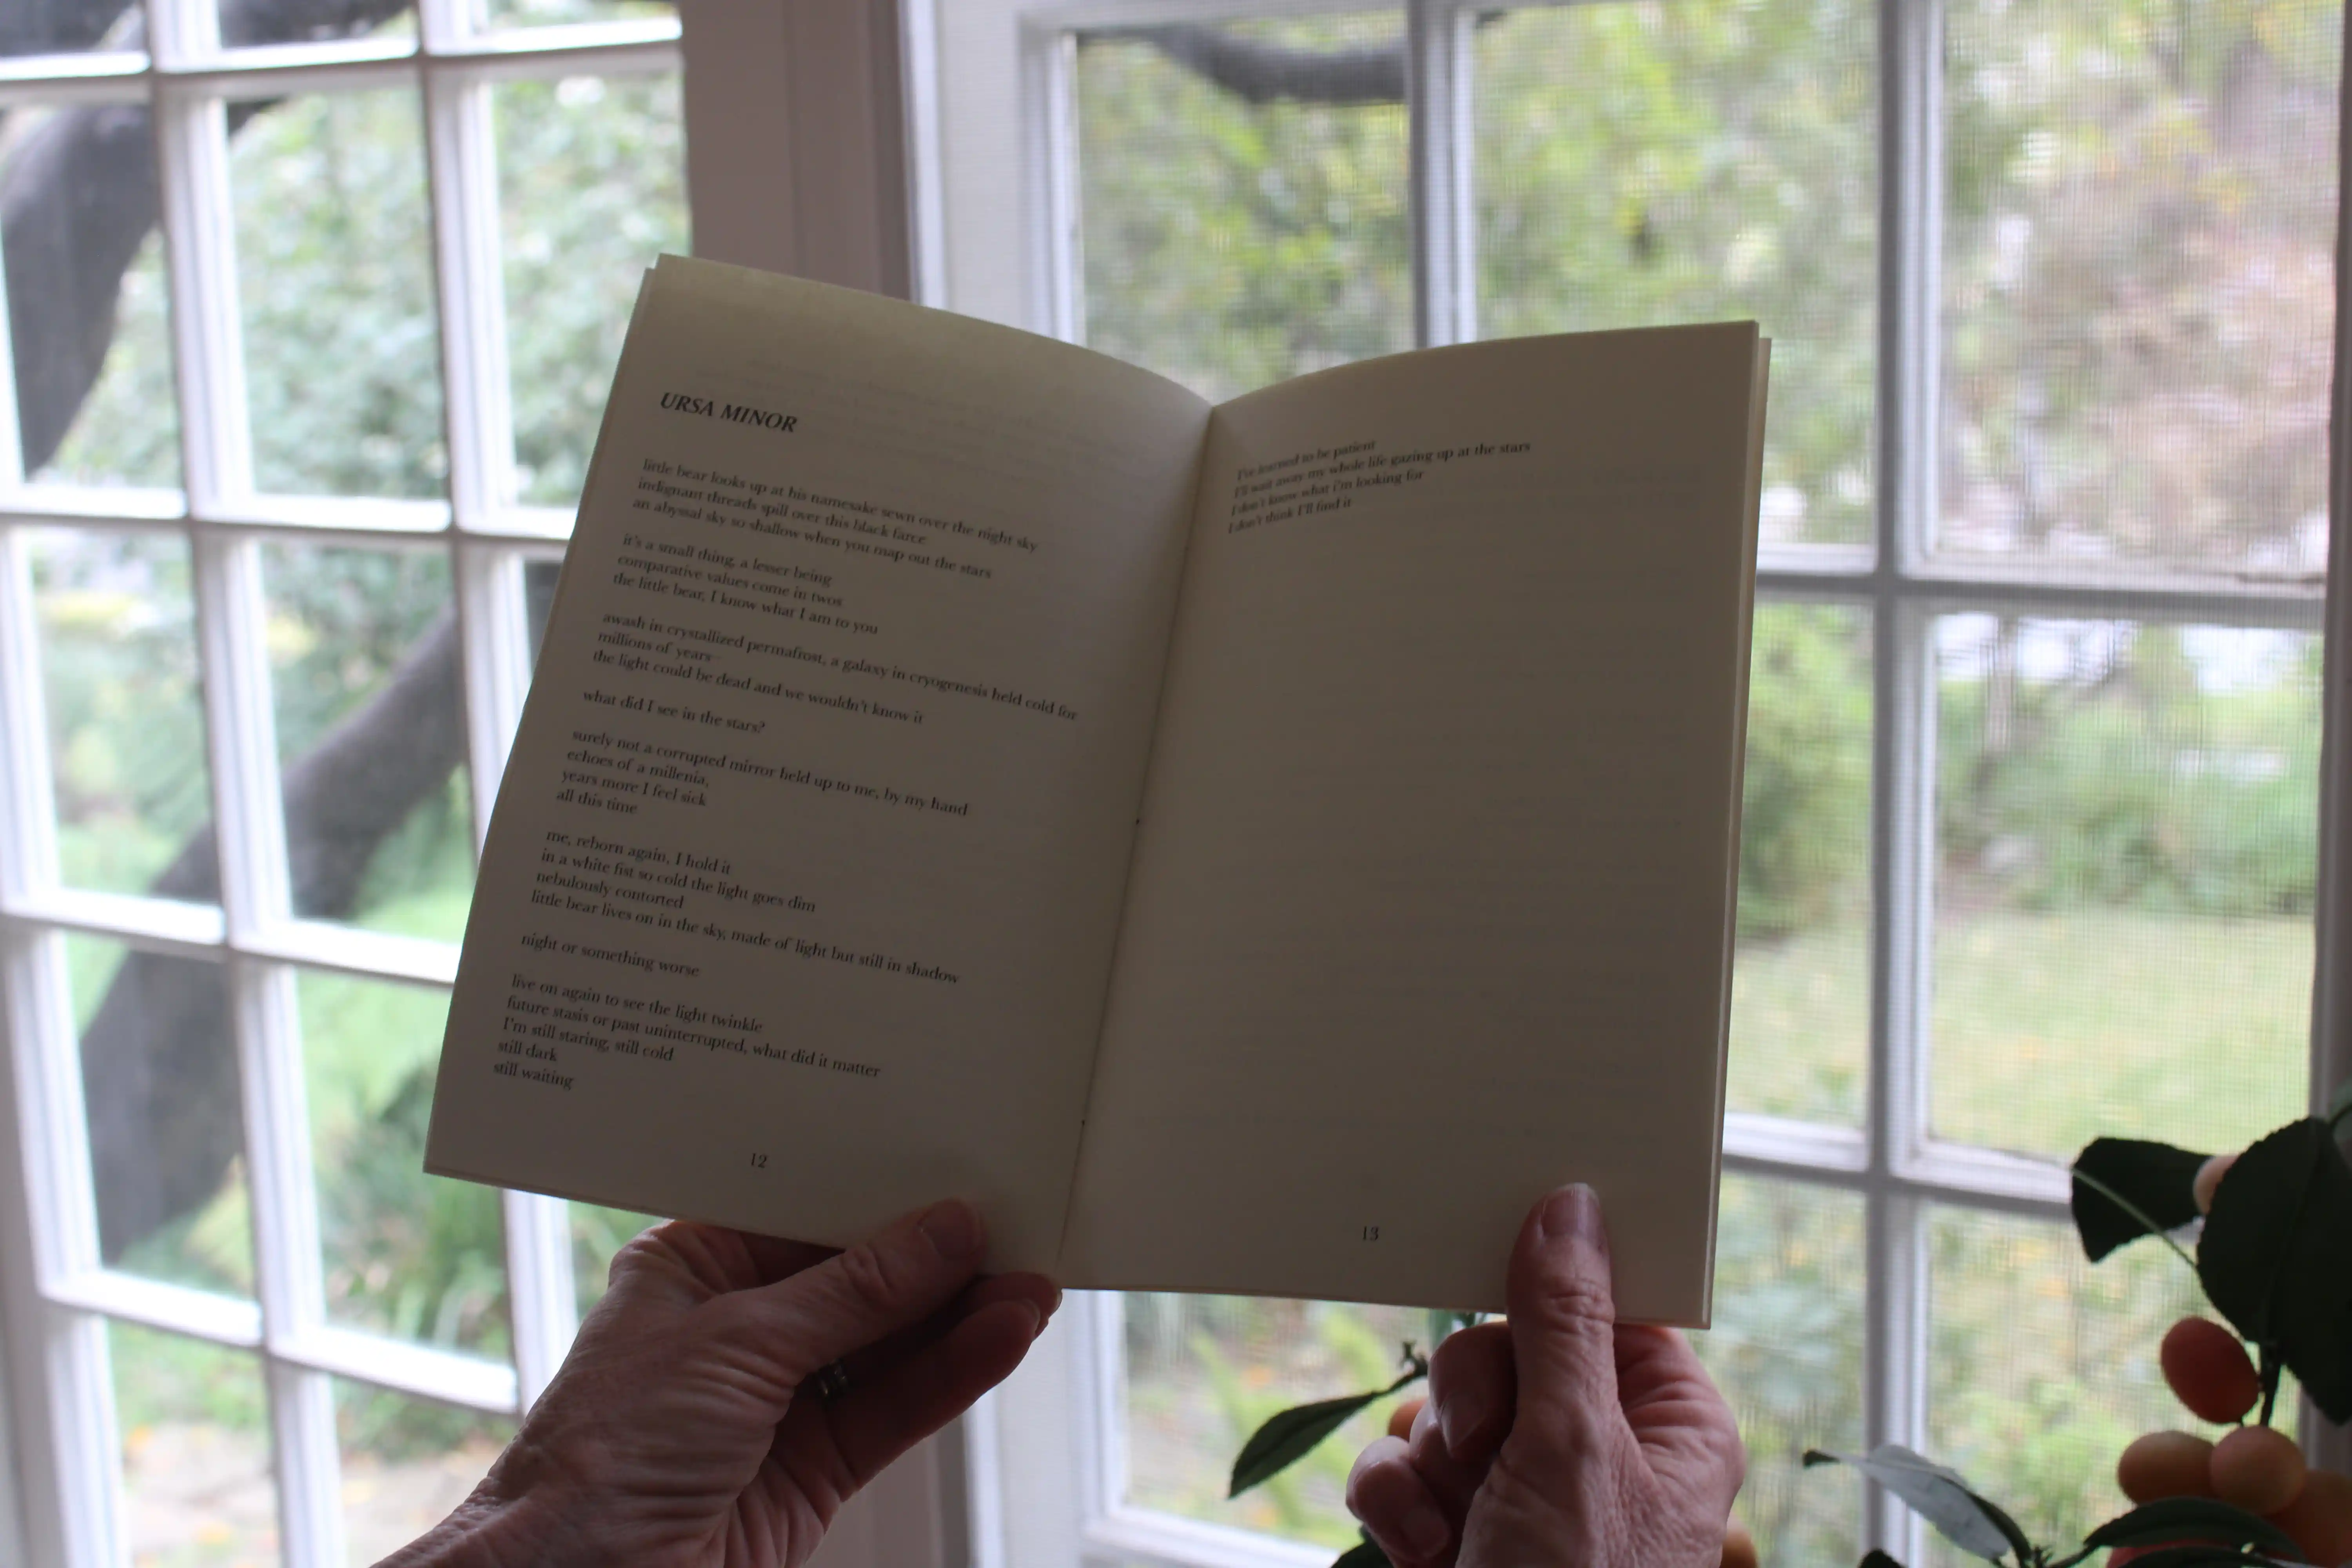 URSA MINOR
little bear looks up at his namesake sewn over the night sky
indignant threads spill over this black farce
an abyssal sky so shallow when you map out the stars
it's a small thing, a lesser being
comparative values come in twos
the little bear, I know what I am to you
awash in crystallized permafrost, a galaxy in cryogenesis held cold for
millions of years
the light could be dead and we wouldn't know it
what did I see in the stars?
surely not a corrupted mirror held up to me, by my hand
echoes of a millenia,
years more I feel sick
all this time
me, reborn again, I hold it
in a white fist so cold the light goes dim
nebulously contorted
little bear lives on in the sky, made of light but still in shadow
night or something worse
live on again to see the light twinkle
future stasis or past uninterrupted, what did it matter
I'm still staring, still cold
still dark
still waiting
12
I've learned to be patient
I'll wait away my whole life gazing up at the stars
I don't know what i'm looking for
I don't think I'll find it
13